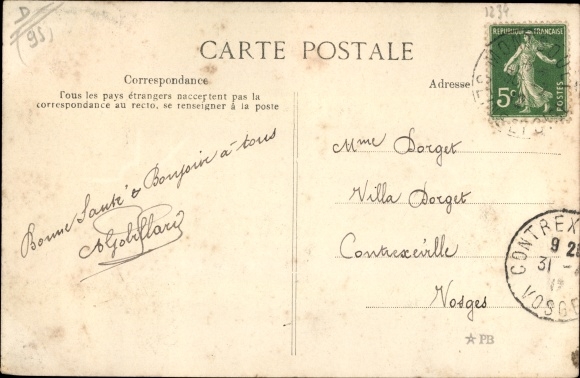 D
(95)
1234
CARTE POSTALE
Correspondance
Tous les pays étrangers n'acceptent pas la
correspondance au recto, se renseigner à la poste
Adresse
REPUBLIQUE FRANÇAISE
5c
POSTES
Bonne Santé & Bonjour à tous
Mme Dorget
Villa Dorget
Contrexéville
Vosges
CONTREX
9
31
VOSGE
PB